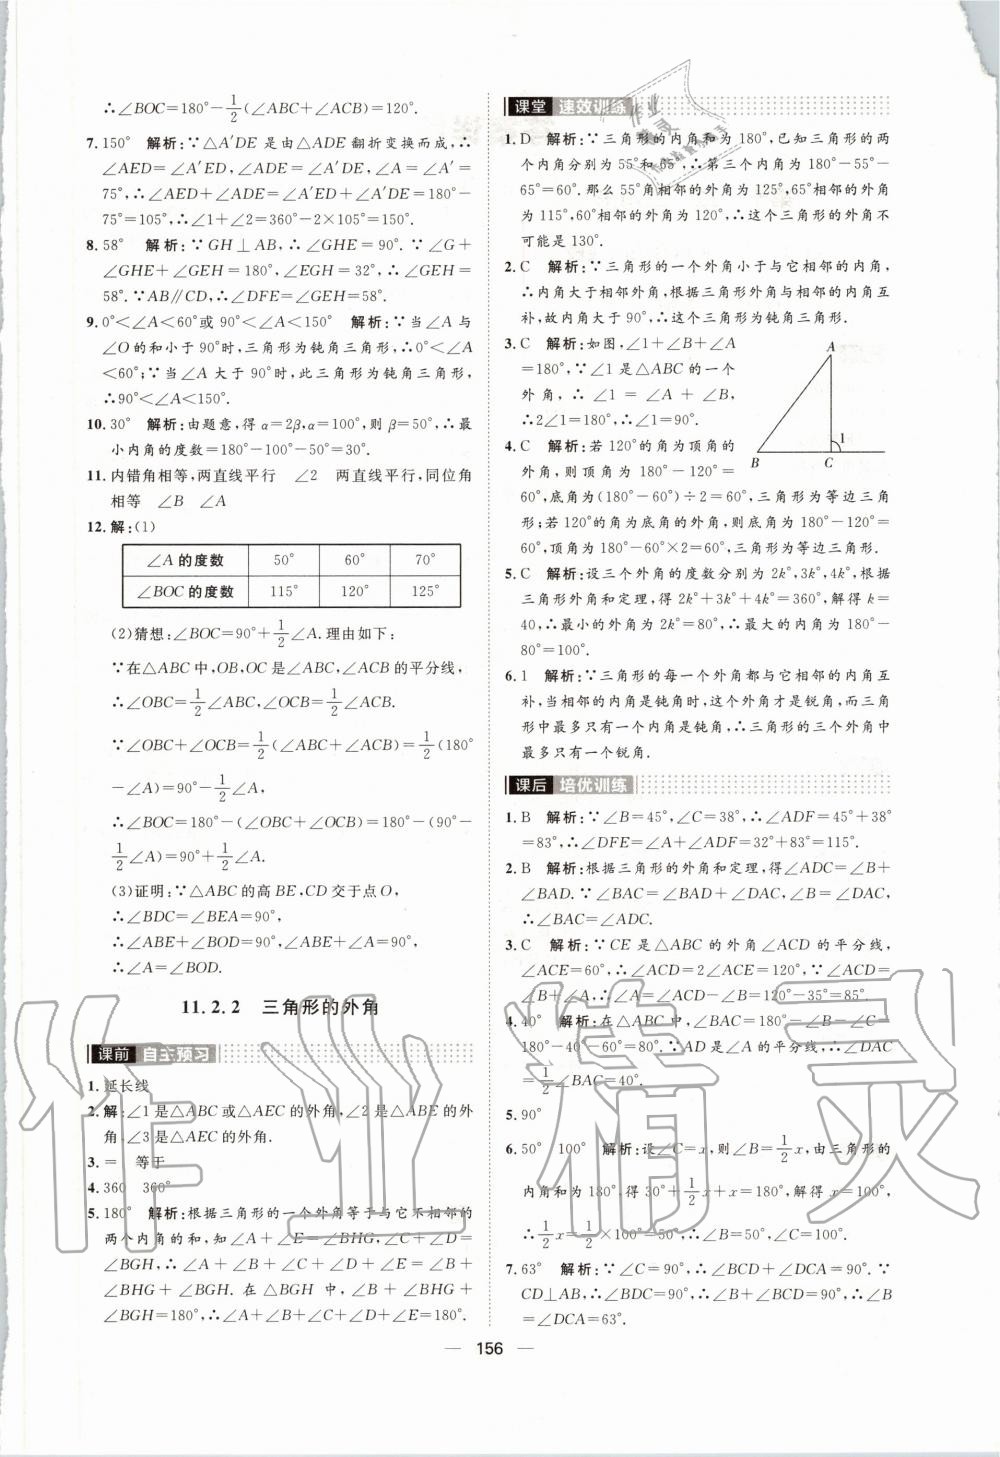 ∴∠BOC=180°-1/2(∠ABC+∠ACB)=120°.
7. 150° 解析:∵△A′DE 是由△ADE 翻折变换而成,∴
∠AED=∠A′ED,∠ADE=∠A′DE,∠A=∠A′=
75°,∴∠AED+∠ADE=∠A′ED+∠A′DE=180°-
75°=105°,∴∠1+∠2=360°-2×105°=150°.
8. 58° 解析:∵GH⊥AB,∴∠GHE=90°.∵∠G+
∠GHE+∠GEH=180°,∠EGH=32°,∴∠GEH=
58°.∵AB∥CD,∴∠DFE=∠GEH=58°.
9. 0°<∠A<60°或 90°<∠A<150° 解析:∵当∠A 与
∠O的和小于90°时,三角形为钝角三角形,∴0°<∠A
<60°;∵当∠A 大于 90°时,此三角形为钝角三角形,
∴90°<∠A<150°.
10. 30° 解析:由题意,得 α=2β,α=100°,则 β=50°,∴最
小内角的度数=180°-100°-50°=30°.
11. 内错角相等,两直线平行 ∠2 两直线平行,同位角
相等 ∠B ∠A
12. 解:(1)
∠A的度数 50° 60° 70°
∠BOC的度数 115° 120° 125°
(2)猜想:∠BOC=90°+1/2∠A.理由如下:
∵在△ABC中,OB,OC是∠ABC,∠ACB的平分线,
∴∠OBC=1/2∠ABC,∠OCB=1/2∠ACB.
∵∠OBC+∠OCB=1/2(∠ABC+∠ACB)=1/2(180°
-∠A)=90°-1/2∠A,
∴∠BOC=180°-(∠OBC+∠OCB)=180°-(90°-
1/2∠A)=90°+1/2∠A.
(3)证明:∵△ABC的高BE,CD交于点O,
∴∠BDC=∠BEA=90°,
∴∠ABE+∠BOD=90°,∠ABE+∠A=90°,
∴∠A=∠BOD.
11.2.2 三角形的外角
课前 自主预习
1. 延长线
2. 解:∠1是△ABC或△AEC的外角,∠2是△ABE的外
角,∠3是△AEC的外角.
3. = 等于
4. 360 360°
5. 180° 解析:根据三角形的一个外角等于与它不相邻的
两个内角的和,知∠A+∠E=∠BHG,∠C+∠D=
∠BGH,∴∠A+∠B+∠C+∠D+∠E=∠B+
∠BHG+∠BGH.在△BGH 中,∠B+∠BHG+
∠BGH=180°,∴∠A+∠B+∠C+∠D+∠E=180°.
课堂 速效训练
1. D 解析:∵三角形的内角和为180°,已知三角形的两
个内角分别为55°和65°,∴第三个内角为180°-55°-
65°=60°.那么55°角相邻的外角为125°,65°相邻的外角
为115°,60°相邻的外角为120°,∴这个三角形的外角不
可能是130°.
2. C 解析:∵三角形的一个外角小于与它相邻的内角,
∴内角大于相邻外角,根据三角形外角与相邻的内角互
补,故内角大于90°,∴这个三角形为钝角三角形.
3. C 解析:如图,∠1+∠B+∠A
=180°,∵∠1是△ABC的一个
外角,∴∠1=∠A+∠B,
∴2∠1=180°,∴∠1=90°.
A
B
C
1
4. C 解析:若120°的角为顶角的
外角,则顶角为180°-120°=
60°,底角为(180°-60°)÷2=60°,三角形为等边三角
形;若120°的角为底角的外角,则底角为180°-120°=
60°,顶角为180°-60°×2=60°,三角形为等边三角形.
5. C 解析:设三个外角的度数分别为2k°,3k°,4k°,根据
三角形外角和定理,得2k°+3k°+4k°=360°,解得k=
40,∴最小的外角为2k°=80°,∴最大的内角为180°-
80°=100°.
6. 1 解析:∵三角形的每一个外角都与它相邻的内角互
补,当相邻的内角是钝角时,这个外角才是锐角,而三角
形中最多只有一个内角是钝角,∴三角形的三个外角中
最多只有一个锐角.
课后 培优训练
1. B 解析:∵∠B=45°,∠C=38°,∴∠ADF=45°+38°
=83°,∴∠DFE=∠A+∠ADF=32°+83°=115°.
2. B 解析:根据三角形的外角和定理,得∠ADC=∠B+
∠BAD.∵∠BAC=∠BAD+∠DAC,∠B=∠DAC,
∴∠BAC=∠ADC.
3. C 解析:∵CE是△ABC的外角∠ACD的平分线,
∠ACE=60°,∴∠ACD=2∠ACE=120°,∵∠ACD=
∠B+∠A,∴∠A=∠ACD-∠B=120°-35°=85°.
4. 40° 解析:在△ABC中,∠BAC=180°-∠B-∠C=
180°-40°-60°=80°.∵AD是∠A的平分线,∴∠DAC
=1/2∠BAC=40°.
5. 90°
6. 50° 100° 解析:设∠C=x,则∠B=1/2x,由三角形的
内角和为180°,得30°+1/2x+x=180°,解得x=100°,
∴1/2x=1/2×100°=50°,∴∠B=50°,∠C=100°.
7. 63° 解析:∵∠C=90°,∴∠BCD+∠DCA=90°.∵
CD⊥AB,∴∠BDC=90°,∴∠B+∠BCD=90°,∴∠B
=∠DCA=63°.
— 156 —
作业精灵